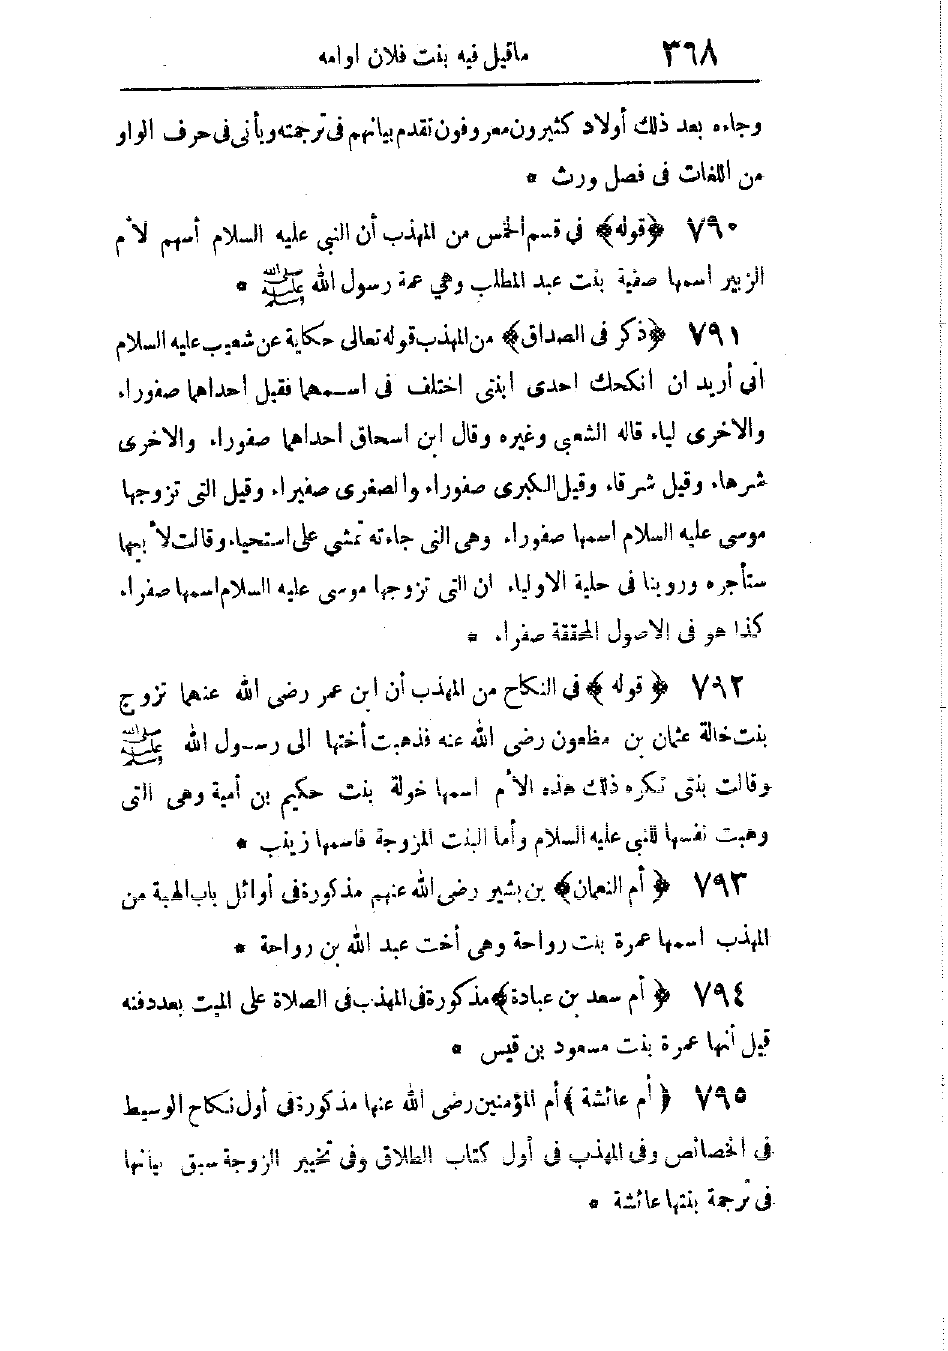 ٣٦٨ ماقيل فيه بنت فلان اوامه
وجاءه بعد ذلك أولاد كثيرون معروفون تقدم بيانهم فى ترجمته ويأتى فى حرف الواو
من اللغات فى فصل ورث *
٧٩٠ ﴿قوله﴾ في قسم الخمس من المهذب أن النبي عليه السلام أسهم لأم
الزبير اسمها صفية بنت عبد المطلب وهي عمة رسول الله ﷺ *
٧٩١ ﴿ذكر فى الصداق﴾ من المهذب قوله تعالى حكاية عن شعيب عليه السلام
أني أريد ان انكحك احدى ابنتى اختلف فى اسمهما فقيل احداهما صفوراء
والاخرى لياء قاله الشعبى وغيره وقال ابن اسحاق احداهما صفوراء والاخرى
شرهاء وقيل شرقاء وقيل الكبرى صفوراء والصغرى صفيراء وقيل التى تزوجها
موسى عليه السلام اسمها صفوراء وهى التى جاءته تمشي على استحياء وقالت لأبيها
ستأجره وروينا فى حلية الاولياء ان التى تزوجها موسى عليه السلام اسمها صفراء
كذا هو فى الاصول المحققة صفراء *
٧٩٢ ﴿قوله﴾ فى النكاح من المهذب أن ابن عمر رضى الله عنهما تزوج
بنت خالة عثمان بن مظعون رضى الله عنه فذهبت أختها الى رسول الله ﷺ
وقالت بنتى تكره ذلك هذه الأم اسمها خولة بنت حكيم بن أمية وهى التى
وهبت نفسها للنبى عليه السلام وأما البنت المزوجة فاسمها زينب *
٧٩٣ ﴿أم النعمان﴾ بن بشير رضى الله عنهم مذكورة فى أوائل باب الهبة من
المهذب اسمها عمرة بنت رواحة وهى أخت عبد الله بن رواحة *
٧٩٤ ﴿أم سعد بن عبادة﴾ مذكورة فى المهذب فى الصلاة على الميت بعد دفنه
قيل أنها عمرة بنت مسعود بن قيس *
٧٩٥ ﴿أم عائشة﴾ أم المؤمنين رضى الله عنها مذكورة فى أول نكاح الوسيط
فى الخصائص وفى المهذب فى أول كتاب الطلاق وفى تخيير الزوجة سبق بيانها
فى ترجمة بنتها عائشة *